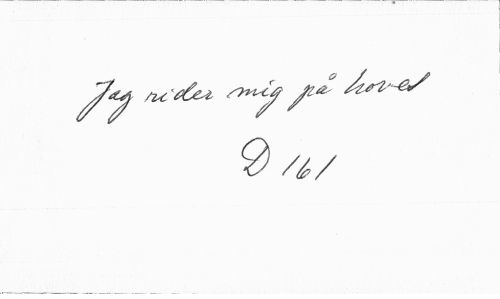 Jag rider mig på hovet
D 161